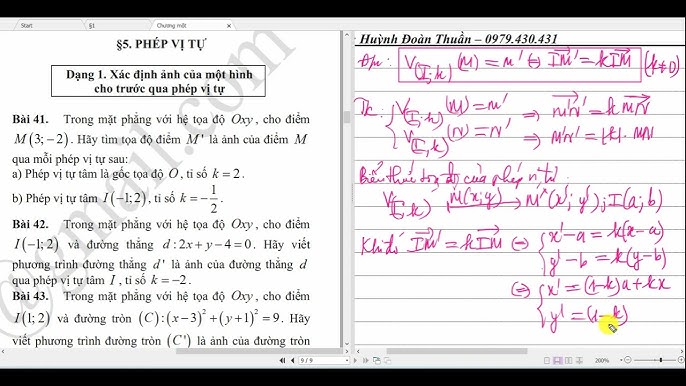 Start
§1
Chương một
§5. PHÉP VỊ TỰ
Dạng 1. Xác định ảnh của một hình
cho trước qua phép vị tự
Bài 41. Trong mặt phẳng với hệ tọa độ Oxy, cho điểm
M(3;−2). Hãy tìm tọa độ điểm M' là ảnh của điểm M
qua mỗi phép vị tự sau:
a) Phép vị tự tâm là gốc tọa độ O, tỉ số k = 2.
b) Phép vị tự tâm I(−1;2), tỉ số k = −1/2.
Bài 42. Trong mặt phẳng với hệ tọa độ Oxy, cho điểm
I(−1;2) và đường thẳng d : 2x + y − 4 = 0. Hãy viết
phương trình đường thẳng d' là ảnh của đường thẳng d
qua phép vị tự tâm I, tỉ số k = −2.
Bài 43. Trong mặt phẳng với hệ tọa độ Oxy, cho điểm
I(1;2) và đường tròn (C): (x−3)² + (y+1)² = 9. Hãy
viết phương trình đường tròn (C') là ảnh của đường tròn
@gmail.com
9 / 9
Huỳnh Đoàn Thuần – 0979.430.431
V(I;k) (M) = M' ⇔ IM' = kIM (k≠0)
Tc: { V(I;k) (M) = M' ⇒ M'N' = k MN
V(I;k) (N) = N' ⇒ M'N' = |k|. MN
Biểu thức tọa độ của phép vị tự.
V(I;k) M(x;y) ⟼ M'(x';y'); I(a;b)
Khi đó IM' = kIM ⇔ { x'−a = k(x−a)
y'−b = k(y−b)
⇔ { x' = (1−k)a + kx
y' = (1−k)
200%